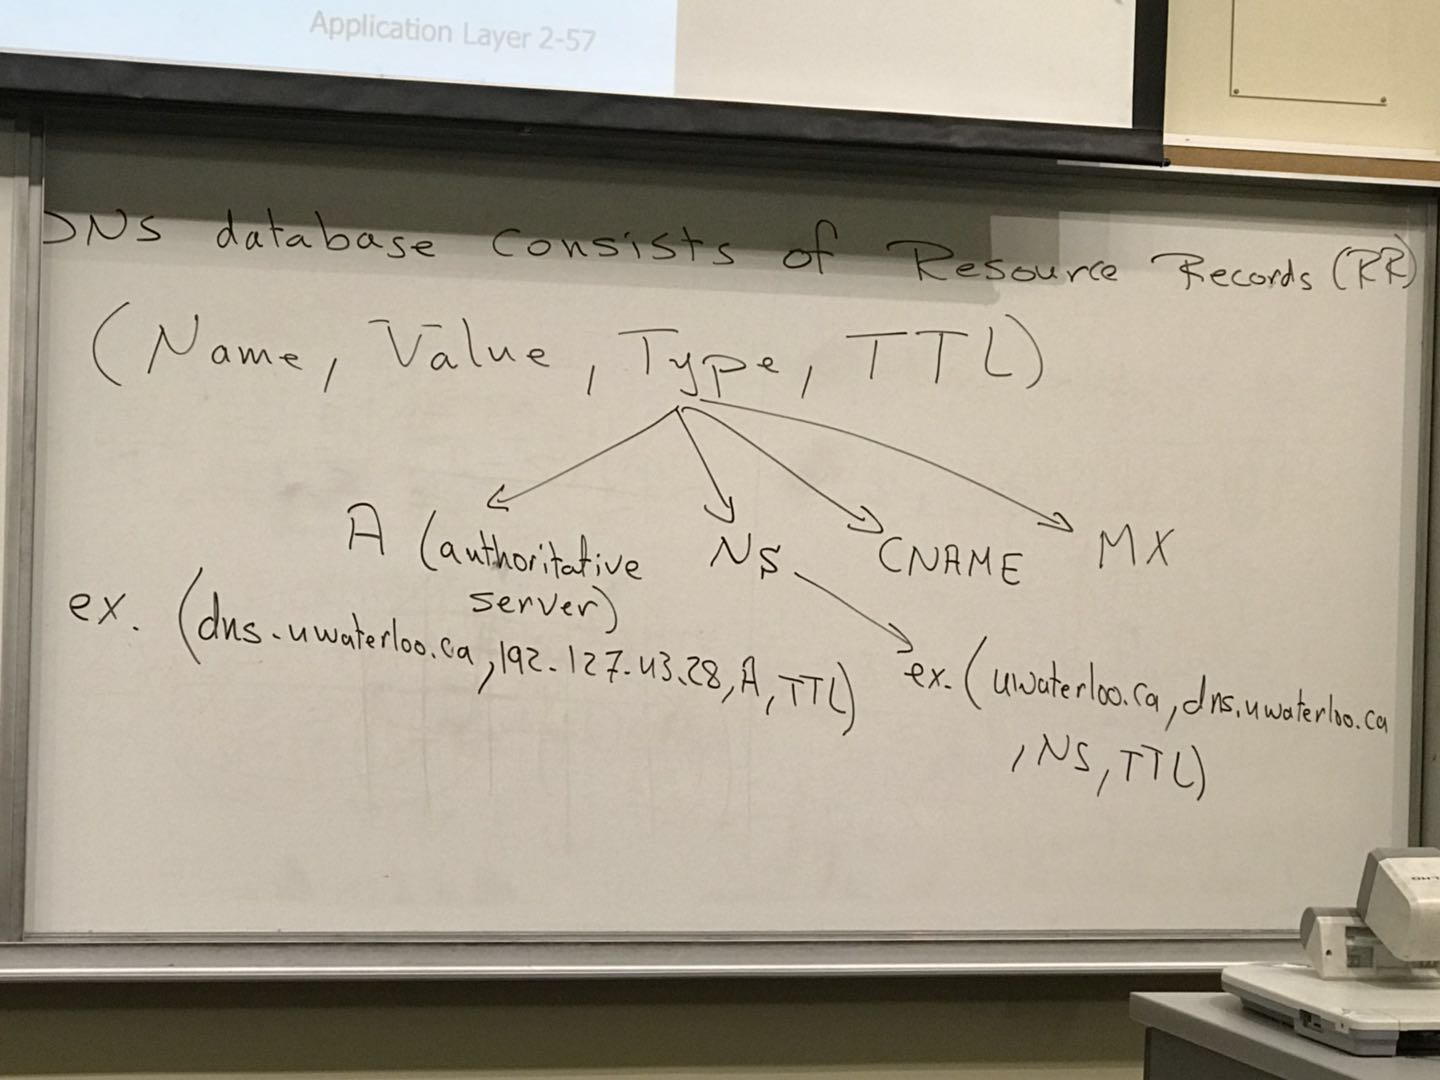 Application Layer 2-57
DNS database consists of Resource Records (RR)
(Name, Value, Type, TTL)
A (authoritative server)
NS
CNAME
MX
ex. (dns.uwaterloo.ca, 192.127.43.28, A, TTL)
ex. (uwaterloo.ca, dns.uwaterloo.ca
, NS, TTL)